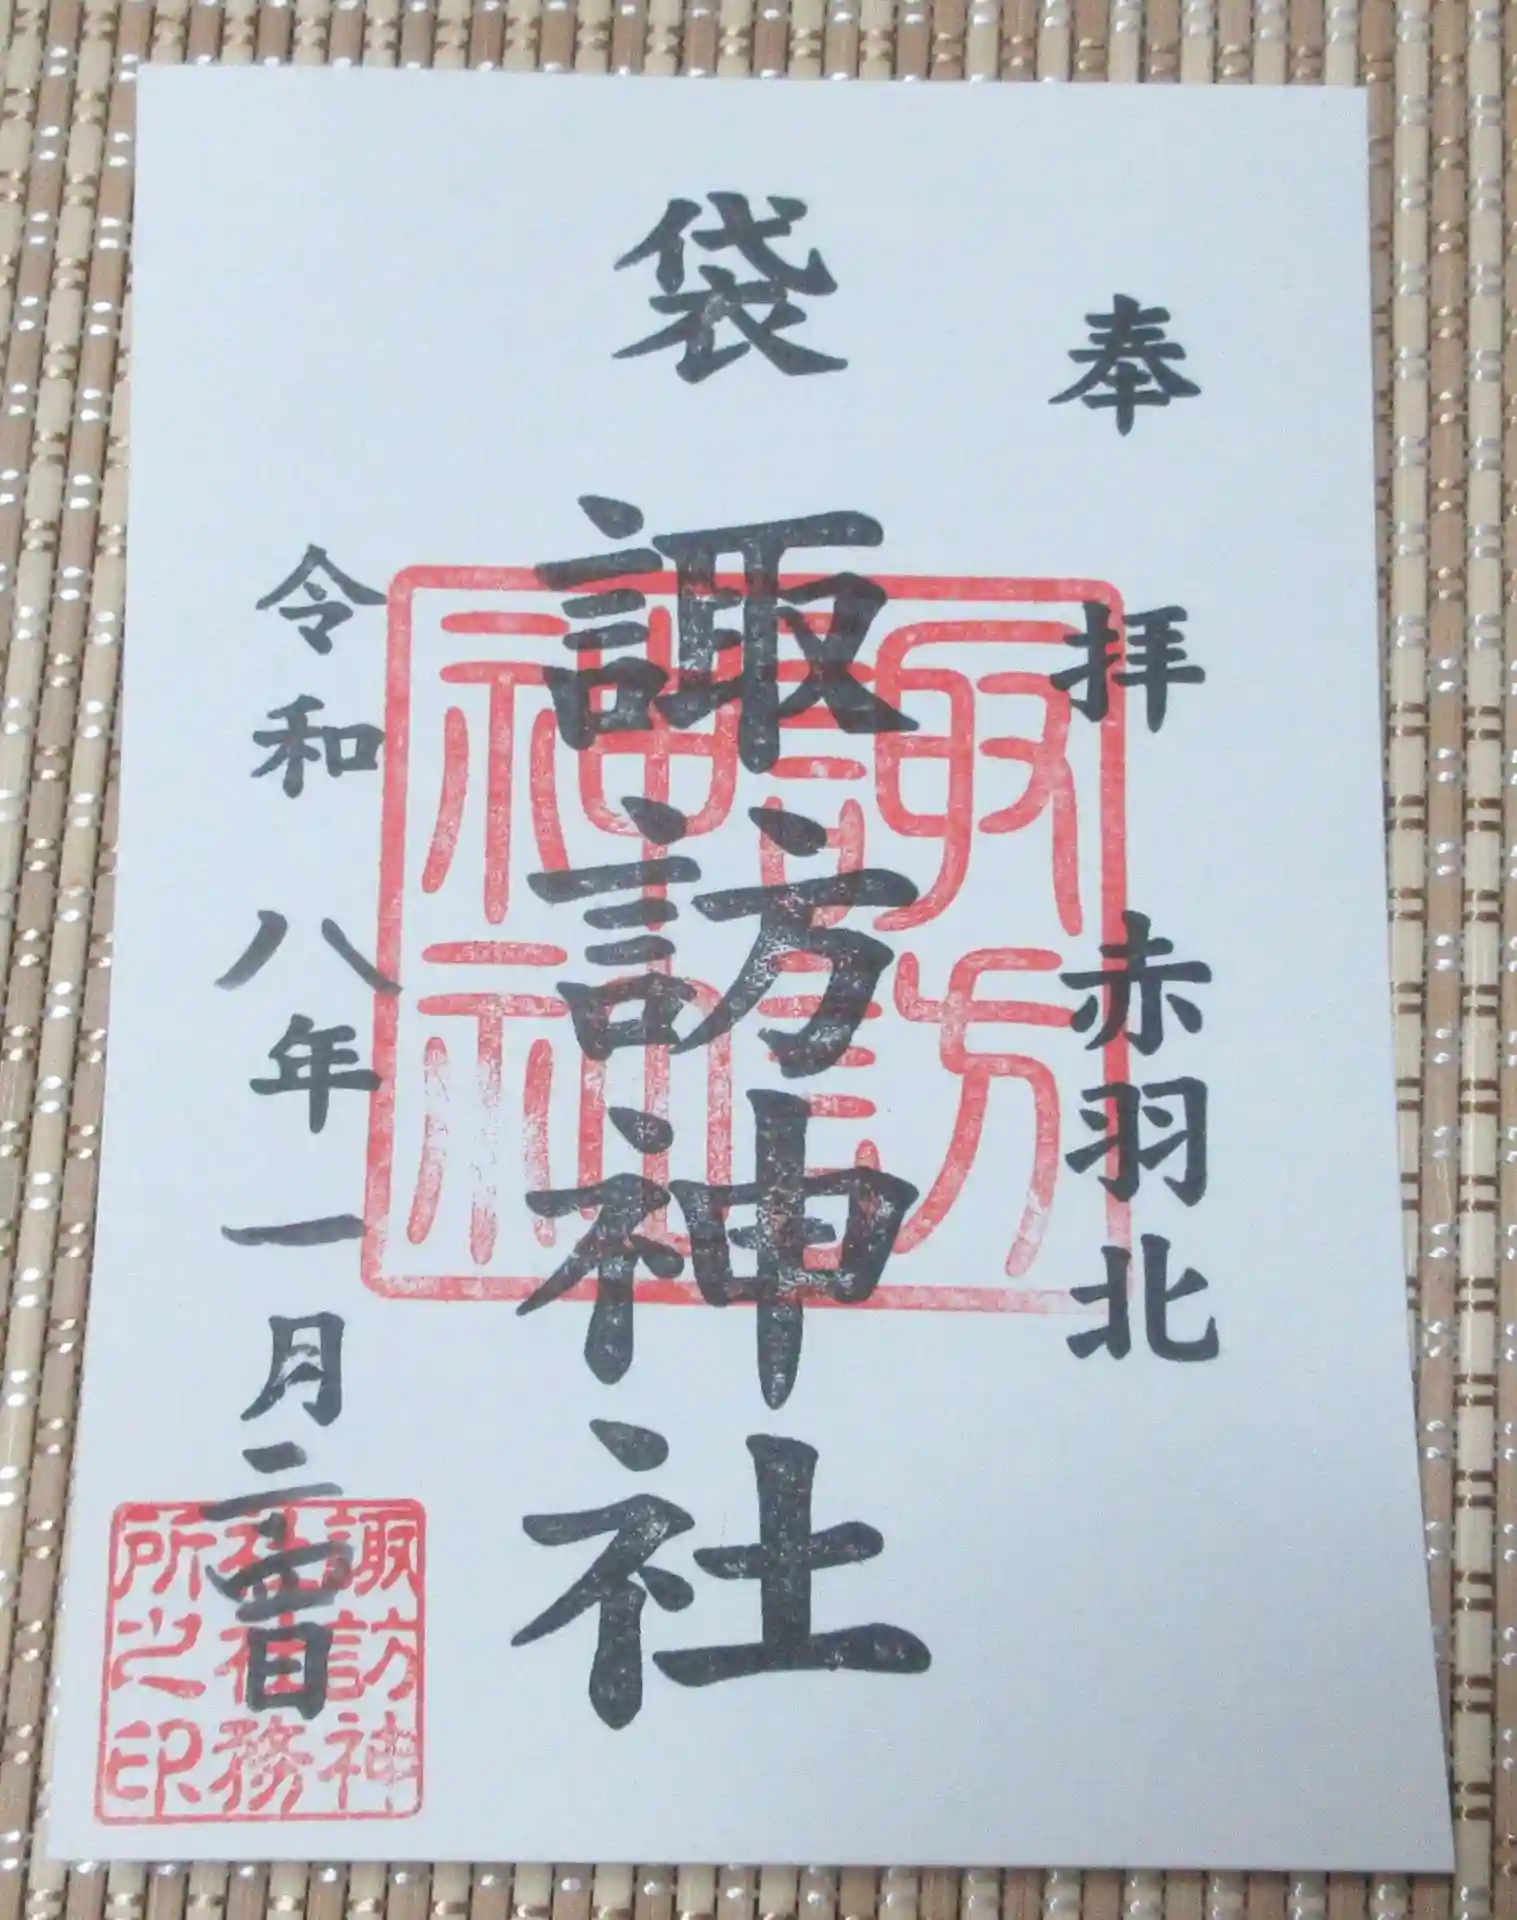 奉拝 赤羽北
袋 諏訪神社
令和八年一月二 日
諏訪神社
諏訪神
社社務
所之印